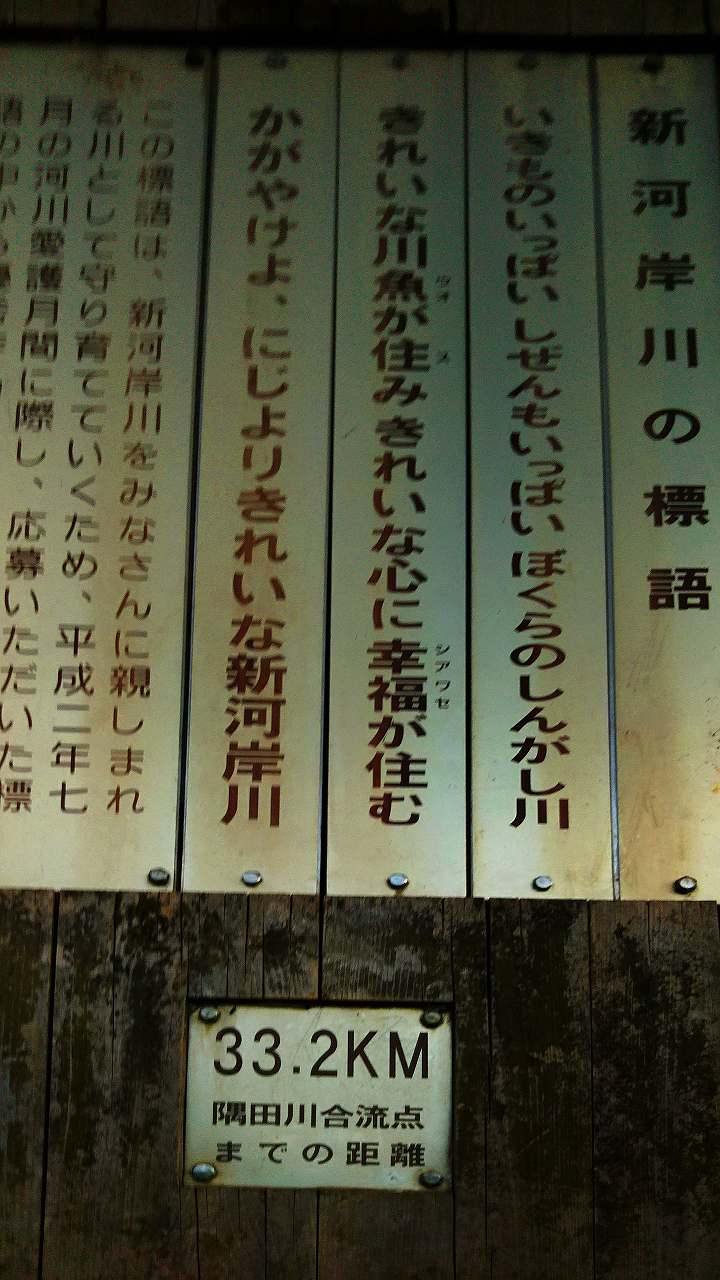 新河岸川の標語
いきものいっぱい しぜんもいっぱい ぼくらのしんがし川
きれいな川魚が住み きれいな心に幸福が住む
ウオ
ス
シアワセ
かがやけよ、にじよりきれいな新河岸川
この標語は、新河岸川をみなさんに親しまれ
る川として守り育てていくため、平成二年七
月の河川愛護月間に際し、応募いただいた標
語の中から
33.2KM
隅田川合流点
までの距離